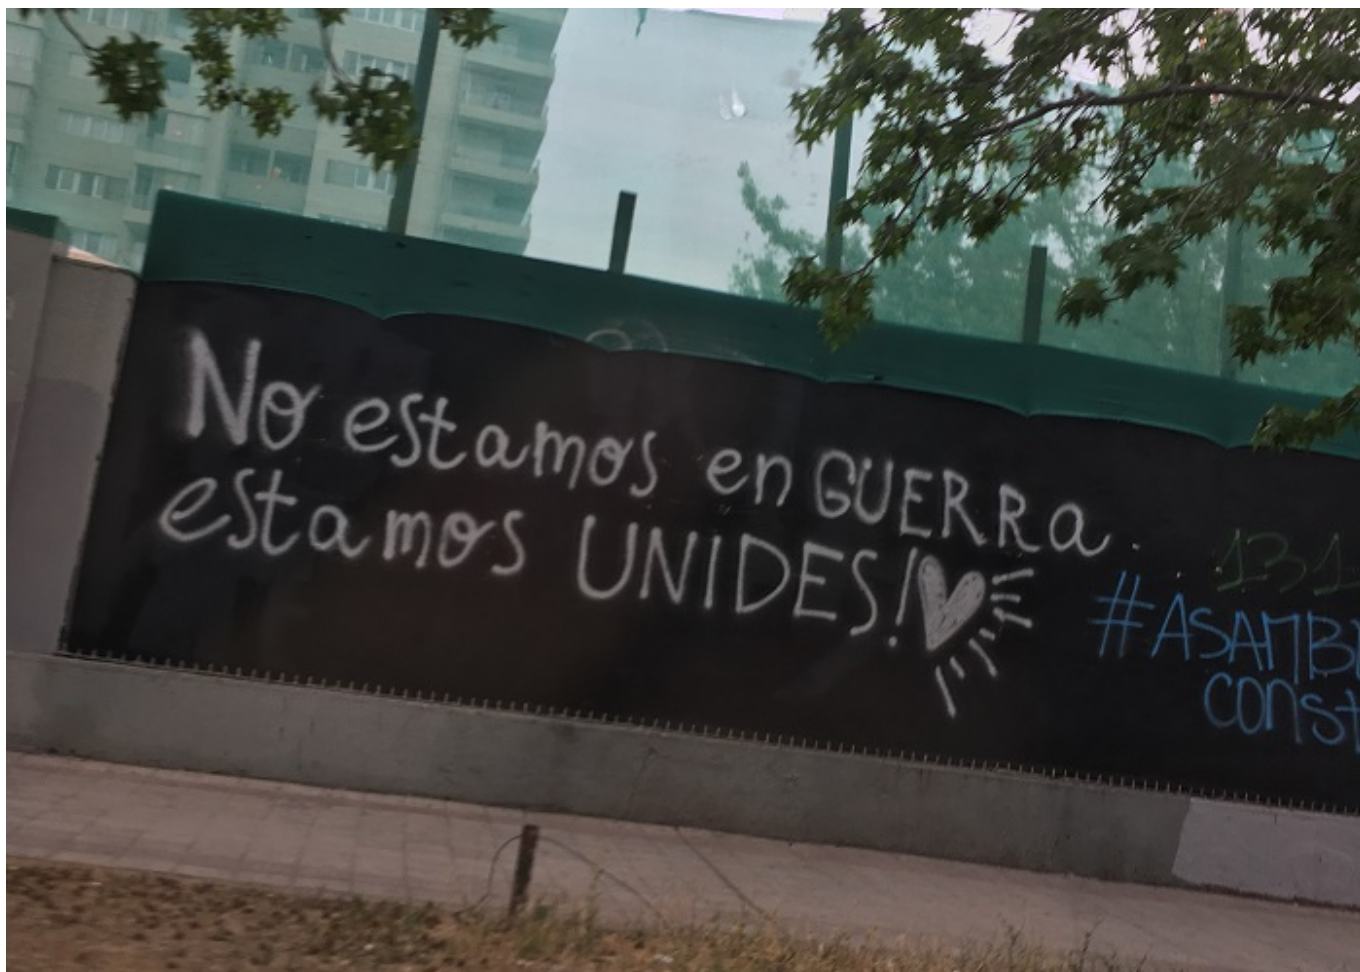 No estamos en GUERRA.
estamos UNIDES!
131
#ASAMB
const